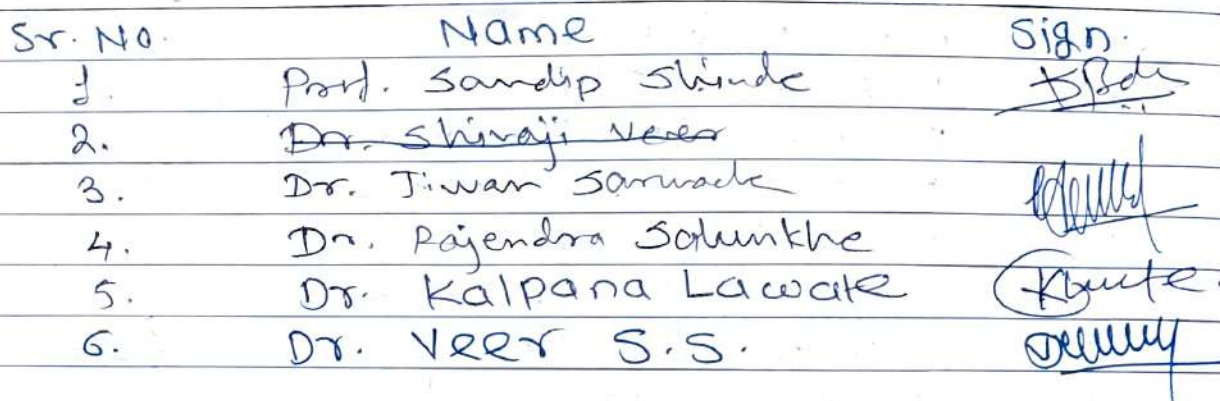 Sr. No. Name Sign.
1. Prof. Sandip Shinde
2. Dr. Shivaji Veer
3. Dr. Jiwan Sarwade
4. Dr. Rajendra Salunkhe
5. Dr. Kalpana Lawate
6. Dr. Veer S.S.